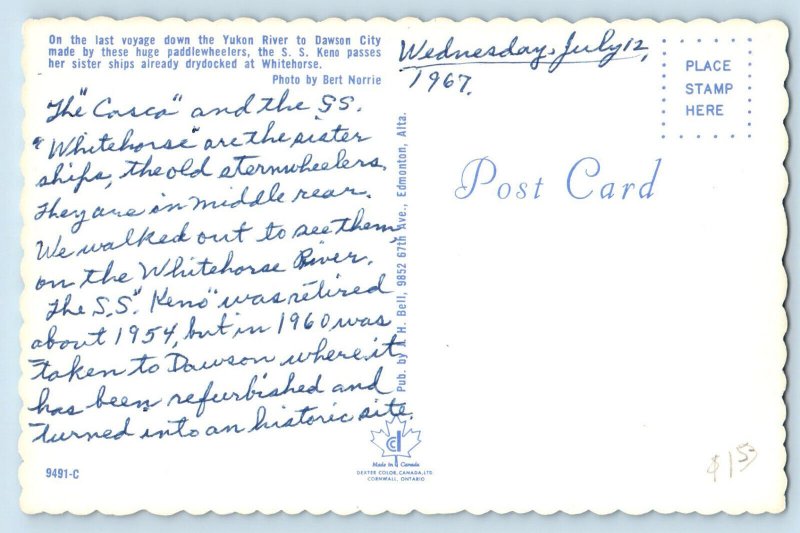 On the last voyage down the Yukon River to Dawson City
made by these huge paddlewheelers, the S. S. Keno passes
her sister ships already drydocked at Whitehorse.
Photo by Bert Norrie
Wednesday, July 12,
1967.
The "Casca" and the SS.
"Whitehorse" are the sister
ships, the old sternwheelers.
They are in middle rear.
We walked out to see them,
on the Whitehorse River.
The S.S. "Keno" was retired
about 1954, but in 1960 was
taken to Dawson where it
has been refurbished and
turned into an historic site.
PLACE
STAMP
HERE
Post Card
Pub. by J. H. Bell, 9852 67th Ave., Edmonton, Alta.
Made in Canada
DEXTER COLOR, CANADA, LTD
CORNWALL, ONTARIO
9491-C
$1.50